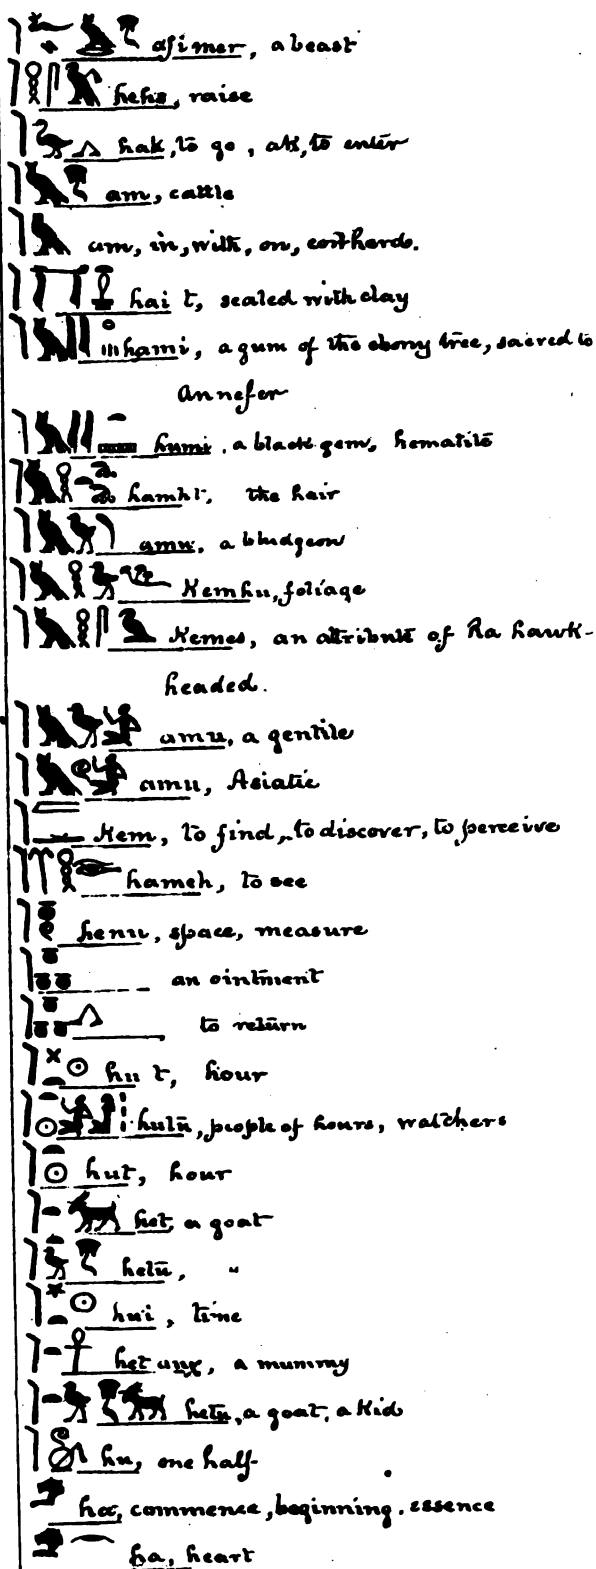 afimer, a beast
hehs, raise
hak, to go, ak, to enter
am, cattle
am, in, with, on, cowherds.
hai t, sealed with clay
hami, a gum of the ebony tree, sacred to
Annefer
humi, a black gem, hematite
hamht, the hair
amu, a bludgeon
Kemhu, foliage
Kemes, an attribute of Ra hawk-
headed.
amu, a gentile
amu, Asiatic
Kem, to find, to discover, to perceive
hameh, to see
henu, space, measure
an ointment
to return
hu t, hour
hutu, people of hours, watchers
hut, hour
het, a goat
hetu, "
hui, time
het anx, a mummy
hetu, a goat, a Kid
hu, one half
ha, commence, beginning. essence
ha, heart